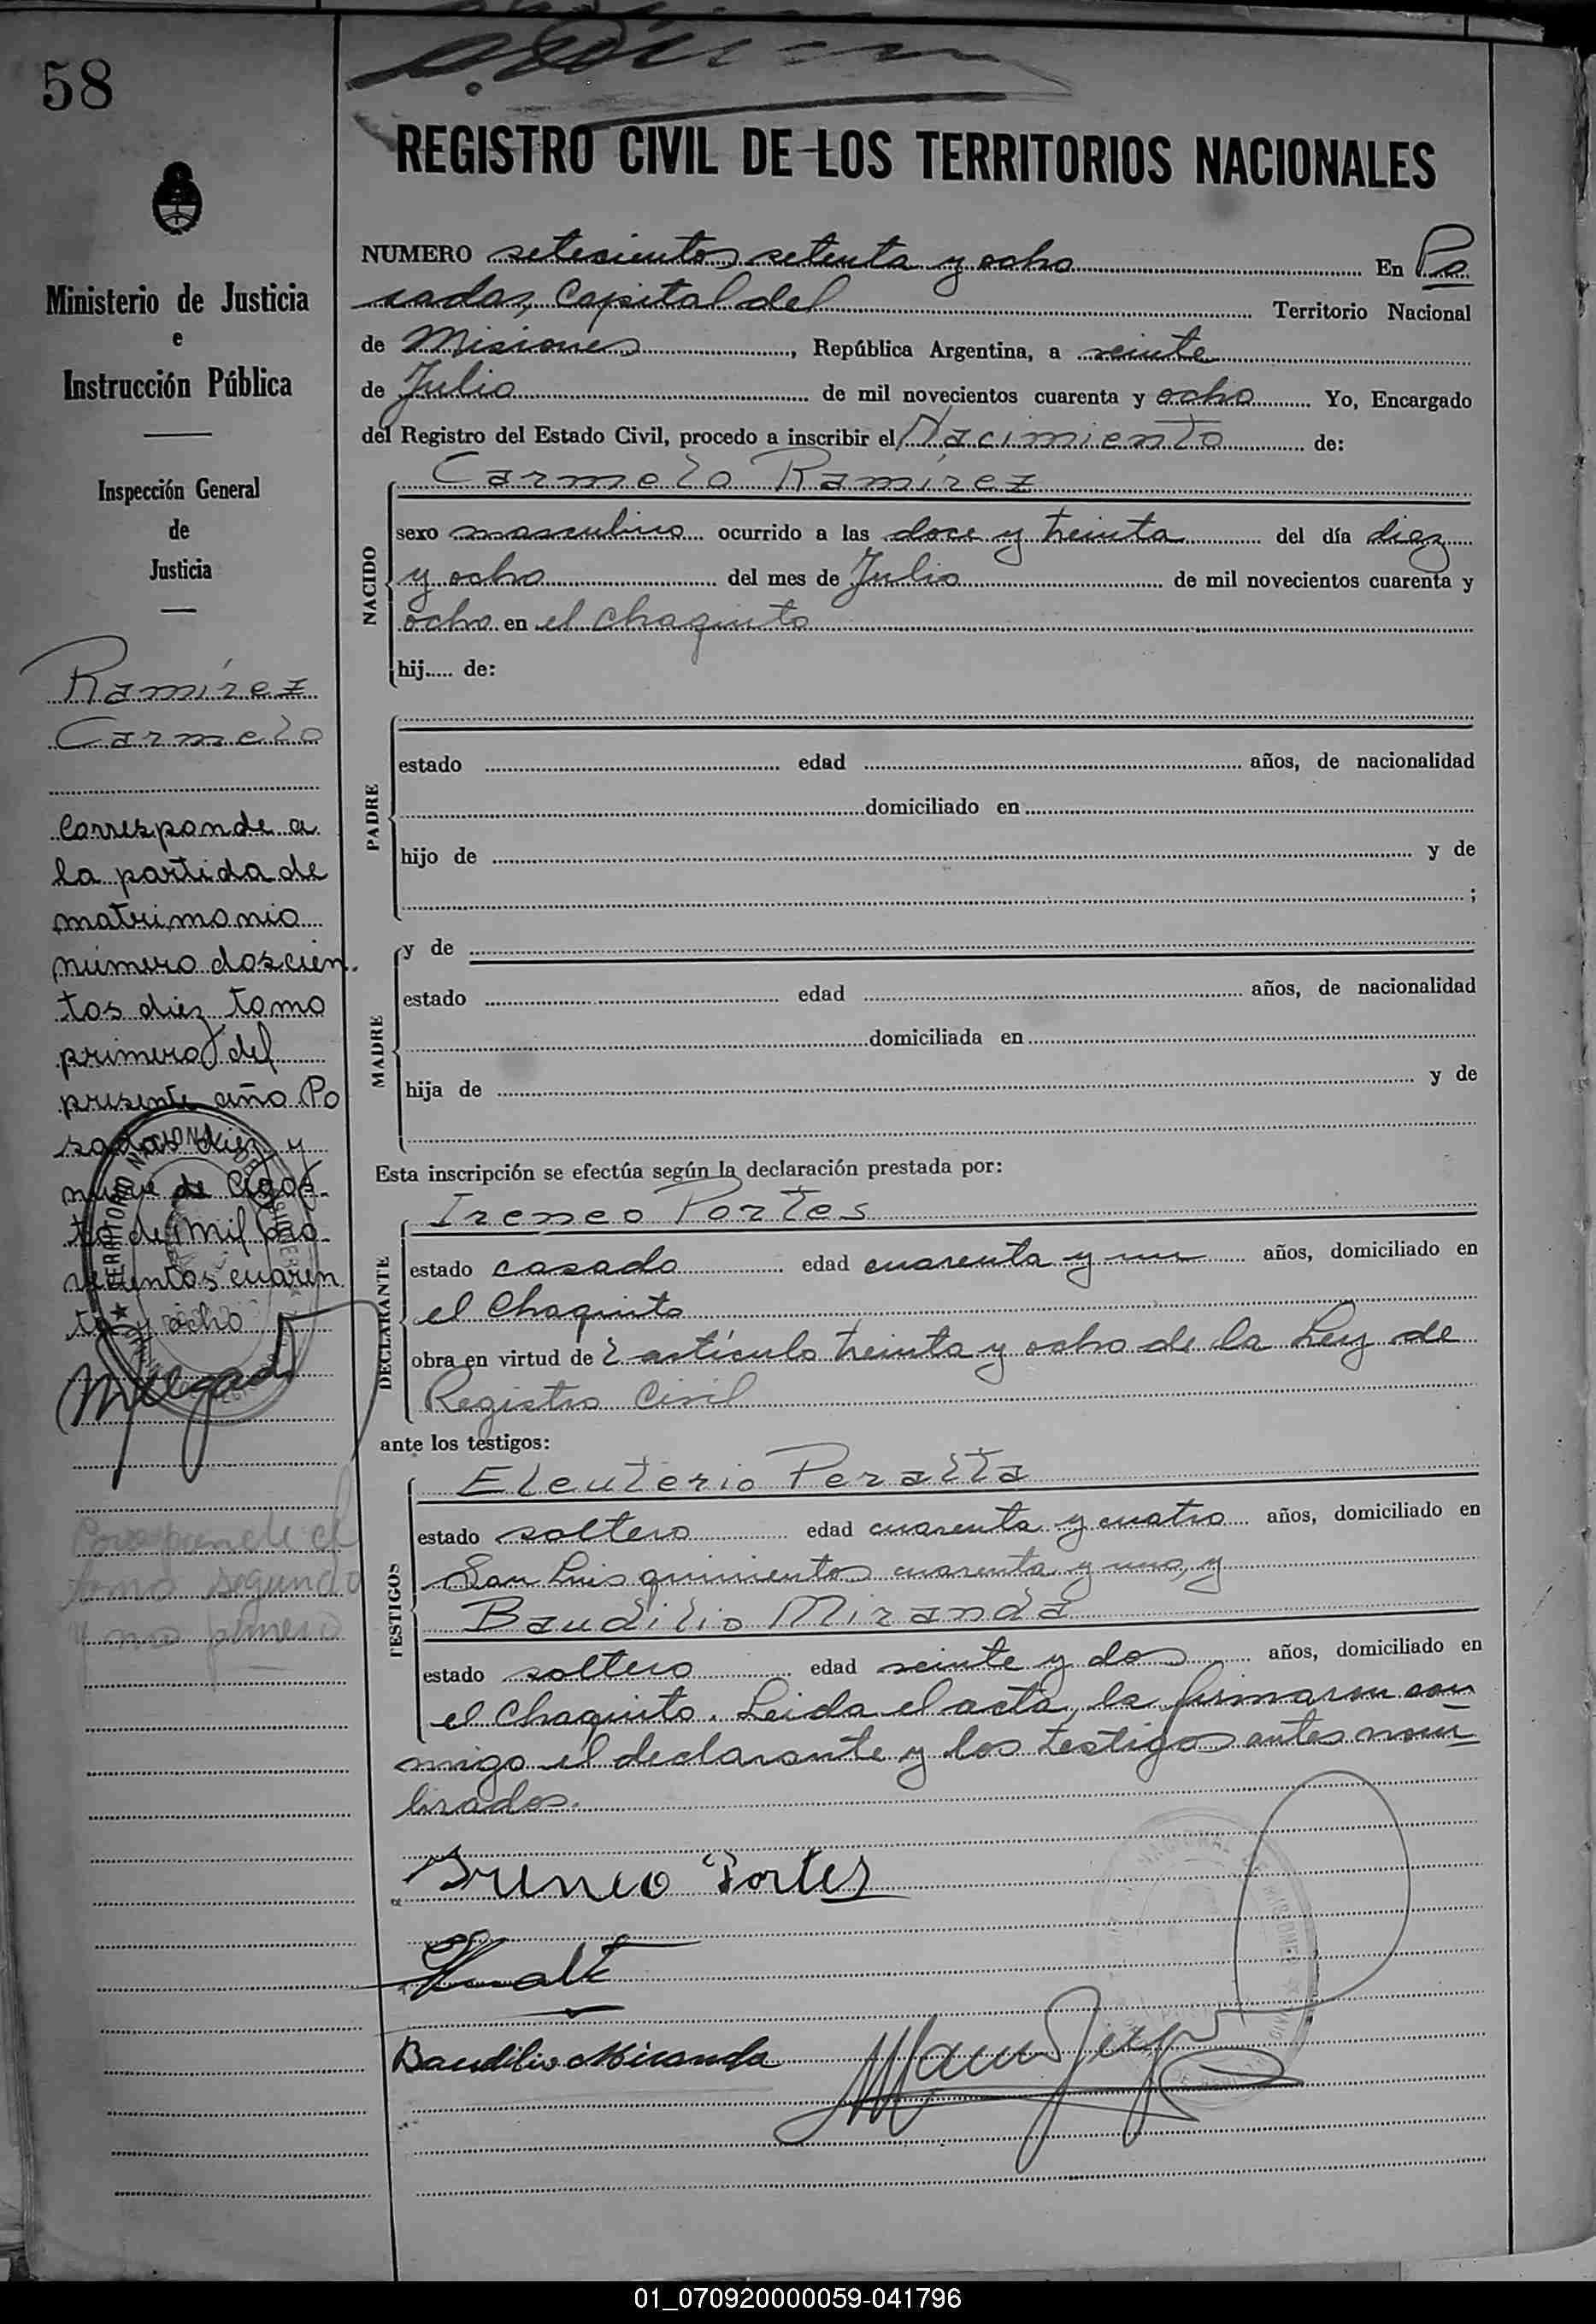 58
REGISTRO CIVIL DE LOS TERRITORIOS NACIONALES
Ministerio de Justicia
e
Instrucción Pública
Inspección General
de
Justicia
Ramírez
Carmelo
Corresponde a
la partida de
matrimonio
número doscien
tos diez tomo
primero del
presente año Po
sadas diez y
nueve de Agos-
to de mil no-
vecientos cuaren
ta y ocho
Corresponde al
tomo segundo
y no primero
NUMERO setecientos setenta y ocho En Po
sadas, Capital del Territorio Nacional
de Misiones, República Argentina, a veinte
de Julio de mil novecientos cuarenta y ocho Yo, Encargado
del Registro del Estado Civil, procedo a inscribir el Nacimiento de:
NACIDO
Carmelo Ramírez
sexo masculino ocurrido a las doce y treinta del día diez
y ocho del mes de Julio de mil novecientos cuarenta y
ocho en el Chaquito
hij..... de:
PADRE
estado edad años, de nacionalidad
domiciliado en
hijo de y de
;
MADRE
y de
estado edad años, de nacionalidad
domiciliada en
hija de y de
Esta inscripción se efectúa según la declaración prestada por:
DECLARANTE
Ireneo Portes
estado casado edad cuarenta y un años, domiciliado en
el Chaquito
obra en virtud de l artículo treinta y ocho de la Ley de
Registro Civil
ante los testigos:
TESTIGOS
Eleuterio Peralta
estado soltero edad cuarenta y cuatro años, domiciliado en
San Luis quinientos cuarenta y uno, y
Baudilio Miranda
estado soltero edad veinte y dos años, domiciliado en
el Chaquito. Leida el acta, la firmaron con
migo el declarante y los testigos antes nom
brados.
Ireneo Portes
Baudilio Miranda
01_070920000059-041796